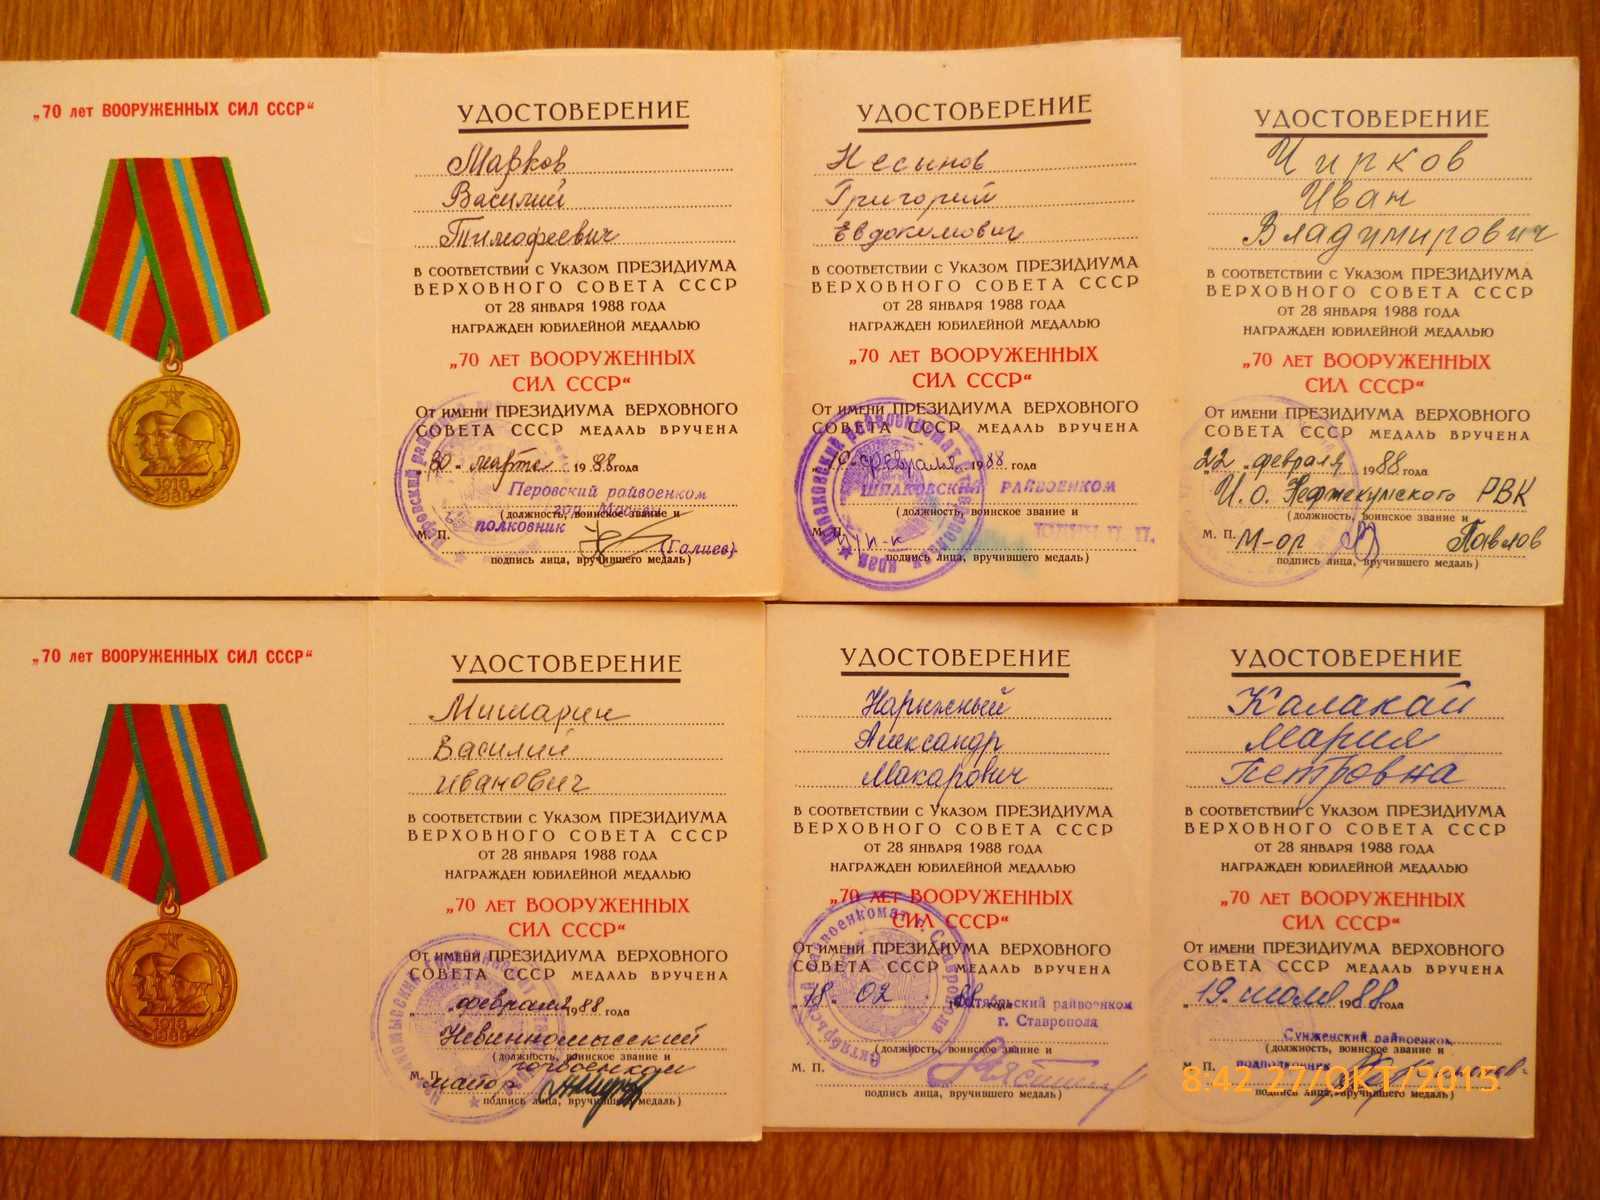 „70 лет ВООРУЖЕННЫХ СИЛ СССР“
1918
1988
УДОСТОВЕРЕНИЕ
Марков
Василий
Тимофеевич
в соответствии с Указом ПРЕЗИДИУМА
ВЕРХОВНОГО СОВЕТА СССР
от 28 января 1988 года
награжден юбилейной медалью
„70 лет ВООРУЖЕННЫХ
СИЛ СССР“
От имени ПРЕЗИДИУМА ВЕРХОВНОГО
СОВЕТА СССР медаль вручена
„30“ марта 1988 года
Перовский райвоенком
гор. Москвы
(должность, воинское звание и
полковник
М. П.
(Галиев)
подпись лица, вручившего медаль)
УДОСТОВЕРЕНИЕ
Несынов
Григорий
Евдокимович
в соответствии с Указом ПРЕЗИДИУМА
ВЕРХОВНОГО СОВЕТА СССР
от 28 января 1988 года
награжден юбилейной медалью
„70 лет ВООРУЖЕННЫХ
СИЛ СССР“
От имени ПРЕЗИДИУМА ВЕРХОВНОГО
СОВЕТА СССР медаль вручена
февраля 1988 года
ШПАКОВСКИЙ РАЙВОЕНКОМ
(должность, воинское звание и
М. П.
п/п-к
подпись лица, вручившего медаль)
УДОСТОВЕРЕНИЕ
Чирков
Иван
Владимирович
в соответствии с Указом ПРЕЗИДИУМА
ВЕРХОВНОГО СОВЕТА СССР
от 28 января 1988 года
награжден юбилейной медалью
„70 лет ВООРУЖЕННЫХ
СИЛ СССР“
От имени ПРЕЗИДИУМА ВЕРХОВНОГО
СОВЕТА СССР медаль вручена
„22“ февраля 1988 года
И.О. Нефтекумского РВК
(должность, воинское звание и
М. П. М-ор Павлов
подпись лица, вручившего медаль)
„70 лет ВООРУЖЕННЫХ СИЛ СССР“
1918
1988
УДОСТОВЕРЕНИЕ
Мишарин
Василий
Иванович
в соответствии с Указом ПРЕЗИДИУМА
ВЕРХОВНОГО СОВЕТА СССР
от 28 января 1988 года
награжден юбилейной медалью
„70 лет ВООРУЖЕННЫХ
СИЛ СССР“
От имени ПРЕЗИДИУМА ВЕРХОВНОГО
СОВЕТА СССР медаль вручена
февраля 1988 года
Невинномысский
(должность, воинское звание и
горвоенком
М. П. майор
подпись лица, вручившего медаль)
УДОСТОВЕРЕНИЕ
Нарыжный
Александр
Макарович
в соответствии с Указом ПРЕЗИДИУМА
ВЕРХОВНОГО СОВЕТА СССР
от 28 января 1988 года
награжден юбилейной медалью
„70 лет ВООРУЖЕННЫХ
СИЛ СССР“
От имени ПРЕЗИДИУМА ВЕРХОВНОГО
СОВЕТА СССР медаль вручена
„18“ 02 1988 года
Октябрьский райвоенком
г. Ставрополя
(должность, воинское звание и
М. П.
подпись лица, вручившего медаль)
УДОСТОВЕРЕНИЕ
Калакай
Мария
Петровна
в соответствии с Указом ПРЕЗИДИУМА
ВЕРХОВНОГО СОВЕТА СССР
от 28 января 1988 года
награжден юбилейной медалью
„70 лет ВООРУЖЕННЫХ
СИЛ СССР“
От имени ПРЕЗИДИУМА ВЕРХОВНОГО
СОВЕТА СССР медаль вручена
„19“ июля 1988 года
Сунженский райвоенком
(должность, воинское звание и
М. П. подполковник
подпись лица, вручившего медаль)
8:42 27/ОКТ/2015